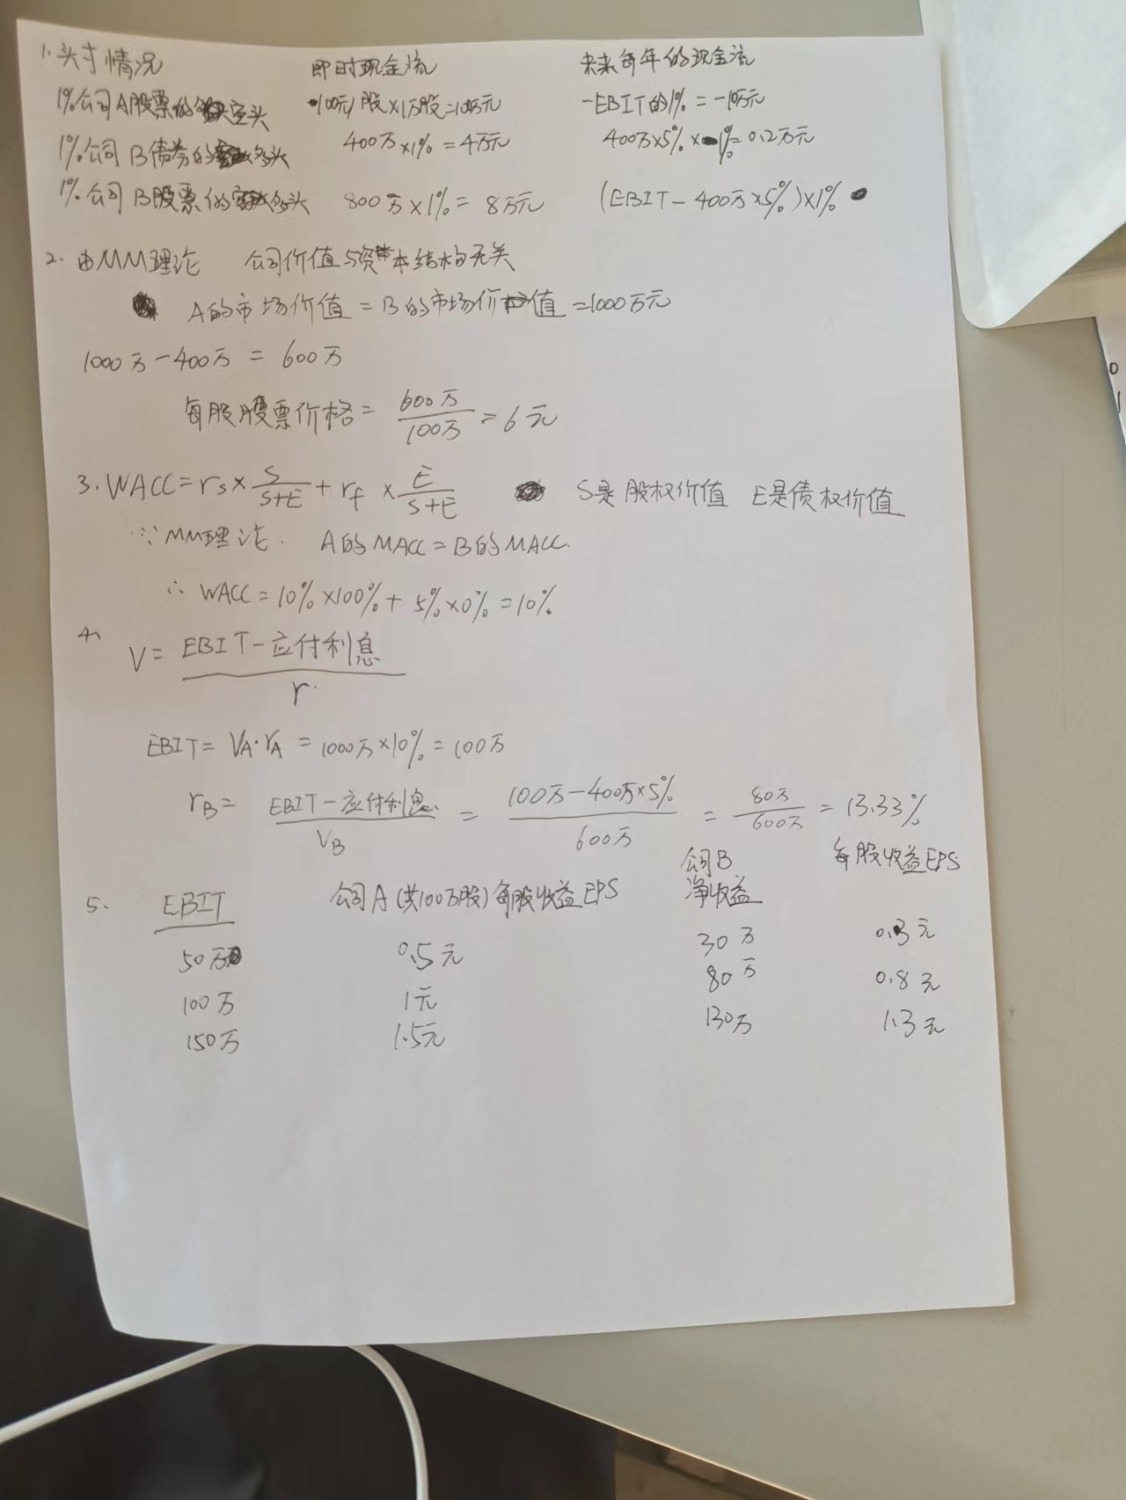 1.头寸情况 即时现金流 未来每年的现金流
1%公司A股票的空头 100元/股×1万股=100万元 -EBIT的1% = -10万元
1%公司B债券的多头 400万×1% = 4万元 400万×5%×1%=0.2万元
1%公司B股票的多头 800万×1% = 8万元 (EBIT-400万×5%)×1%
2. 由MM理论 公司价值与资本结构无关
A的市场价值 = B的市场价值 =1000万元
1000万-400万 = 600万
每股股票价格 = 600万/100万 = 6元
3. WACC = rs × S/(S+E) + rf × E/(S+E) S是股权价值 E是债权价值
∵MM理论. A的MACC = B的MACC.
∴ WACC = 10%×100% + 5%×0% = 10%
4、 V = (EBIT-应付利息)/r
EBIT = VA·rA = 1000万×10% = 100万
rB = (EBIT-应付利息)/VB = (100万-400万×5%)/600万 = 80万/600万 = 13.33%
5. EBIT 公司A(共100万股)每股收益EPS 公司B净收益 每股收益EPS
50万 0.5元 30万 0.3元
100万 1元 80万 0.8元
150万 1.5元 130万 1.3元